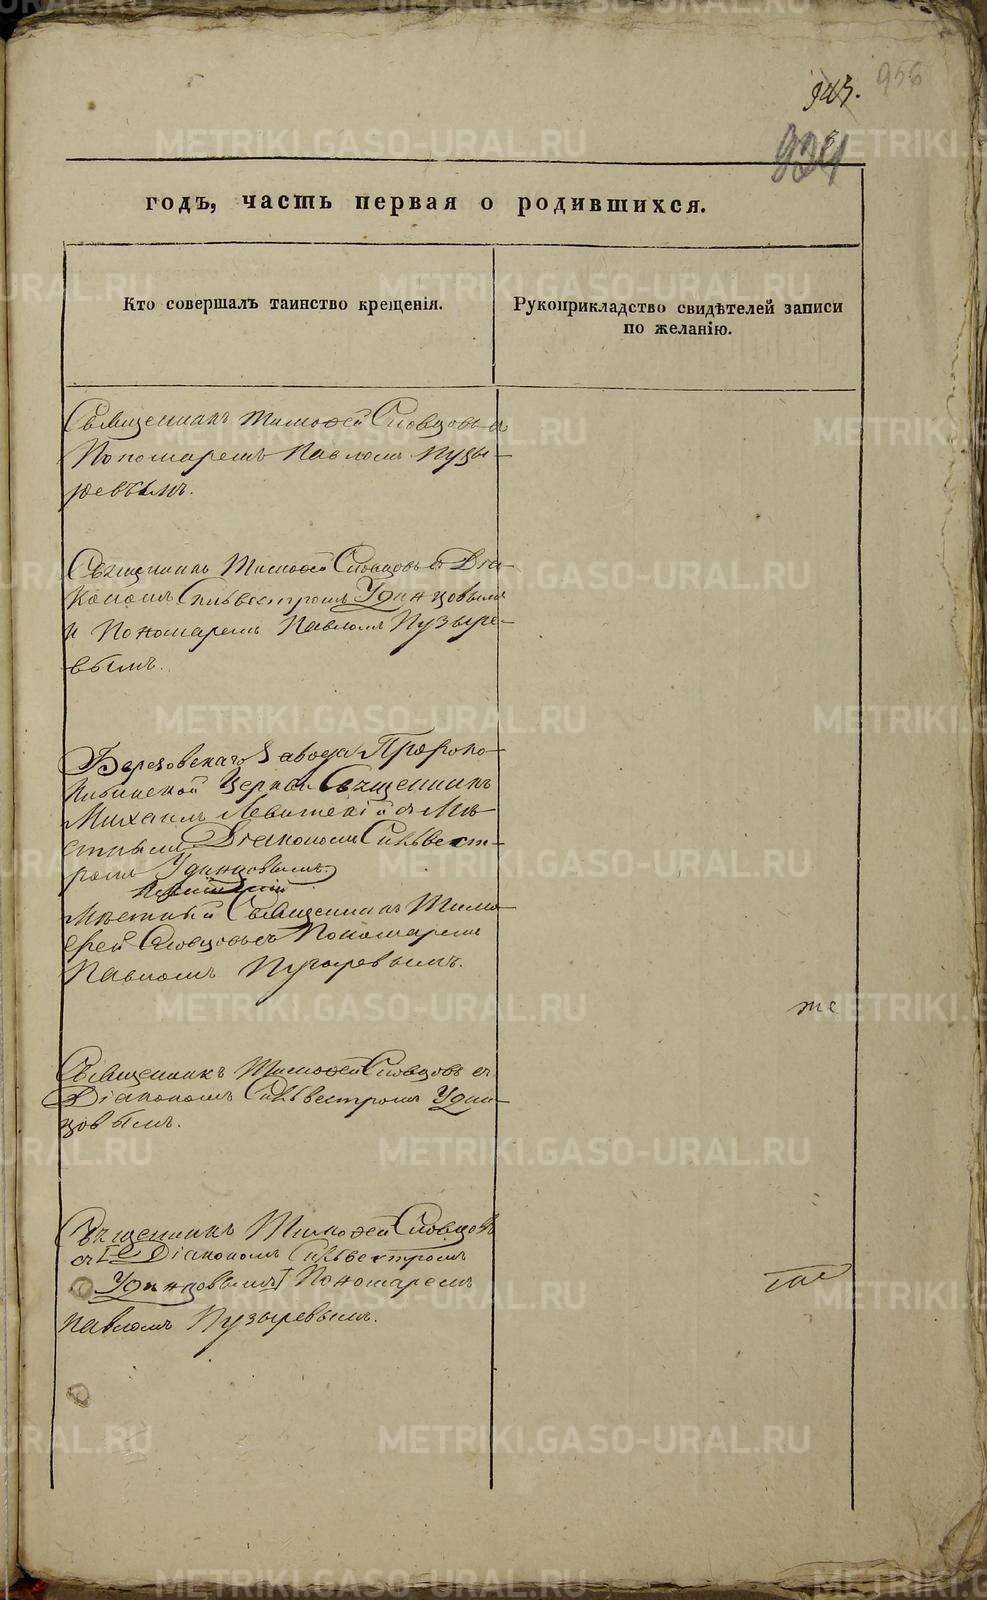 956
943.
934
годъ, часть первая о родившихся.
Кто совершалъ таинство крещенія.
Рукоприкладство свидѣтелей записи
по желанію.
Священникъ Тимофей Словцовъ съ
Пономаремъ Павломъ Пузы-
ревымъ.
Священникъ Тимофей Словцовъ съ Діа-
кономъ Сильвестромъ Удинцовымъ
и Пономаремъ Павломъ Пузыре-
вымъ.
Березовскаго Завода Пророко
Ильинской Церкви Священникъ
Михаилъ Левитскій съ Мѣ-
стнымъ Діакономъ Сильвест-
ромъ Удинцовымъ.
Мѣстный Священникъ Тимо-
фей Словцовъ съ Пономаремъ
Павломъ Пузыревымъ.
же
Священникъ Тимофей Словцовъ съ
Діакономъ Сильвестромъ Удин-
цовымъ.
Священникъ Тимофей Словцовъ
съ Діакономъ Сильвестромъ
Удинцовымъ Пономаремъ
Павломъ Пузыревымъ.
METRIKI.GASO-URAL.RU